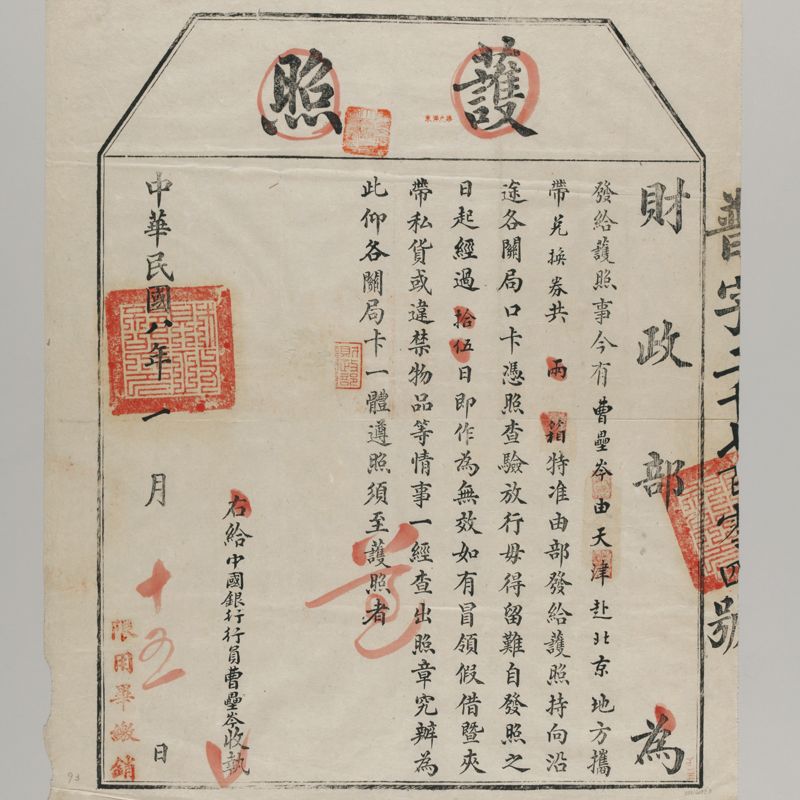 護照
普字二千七百零四號
財政部為
發給護照事今有曹壘岑由天津赴北京地方攜
帶兑換券共兩箱特准由部發給護照持向沿
途各關局口卡憑照查驗放行毋得留難自發照之
日起經過拾伍日即作為無效如有冒領假借暨夾
帶私貨或違禁物品等情事一經查出照章究辦為
此仰各關局卡一體遵照須至護照者
右給中國銀行行員曹壘岑收執
中華民國八年一月十五日
限用畢繳銷
財政部